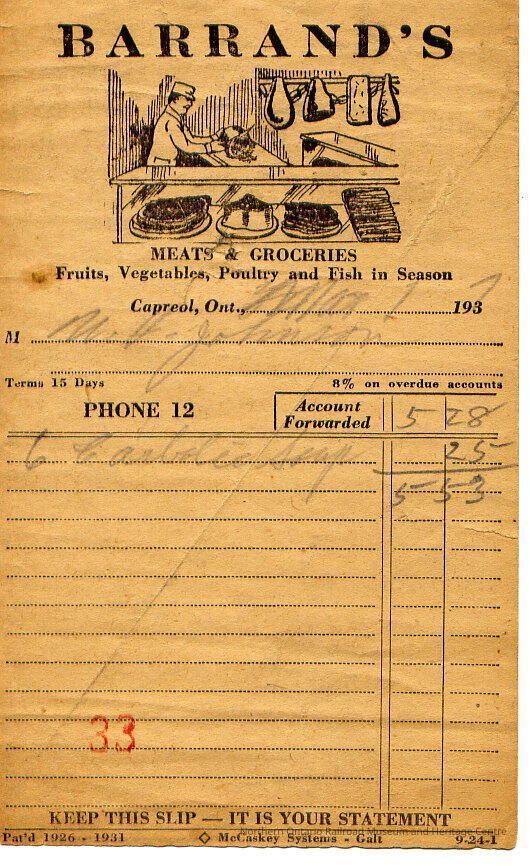 BARRAND'S
MEATS & GROCERIES
Fruits, Vegetables, Poultry and Fish in Season
Capreol, Ont., 1 1937
M Johnson
Terms 15 Days 8% on overdue accounts
PHONE 12 Account Forwarded 5 28
6 Carbolic Soap 25
5 53
33
KEEP THIS SLIP — IT IS YOUR STATEMENT
Northern Ontario Railroad Museum and Heritage Centre
Pat'd 1926 - 1931 ◇ McCaskey Systems - Galt 9-24-1